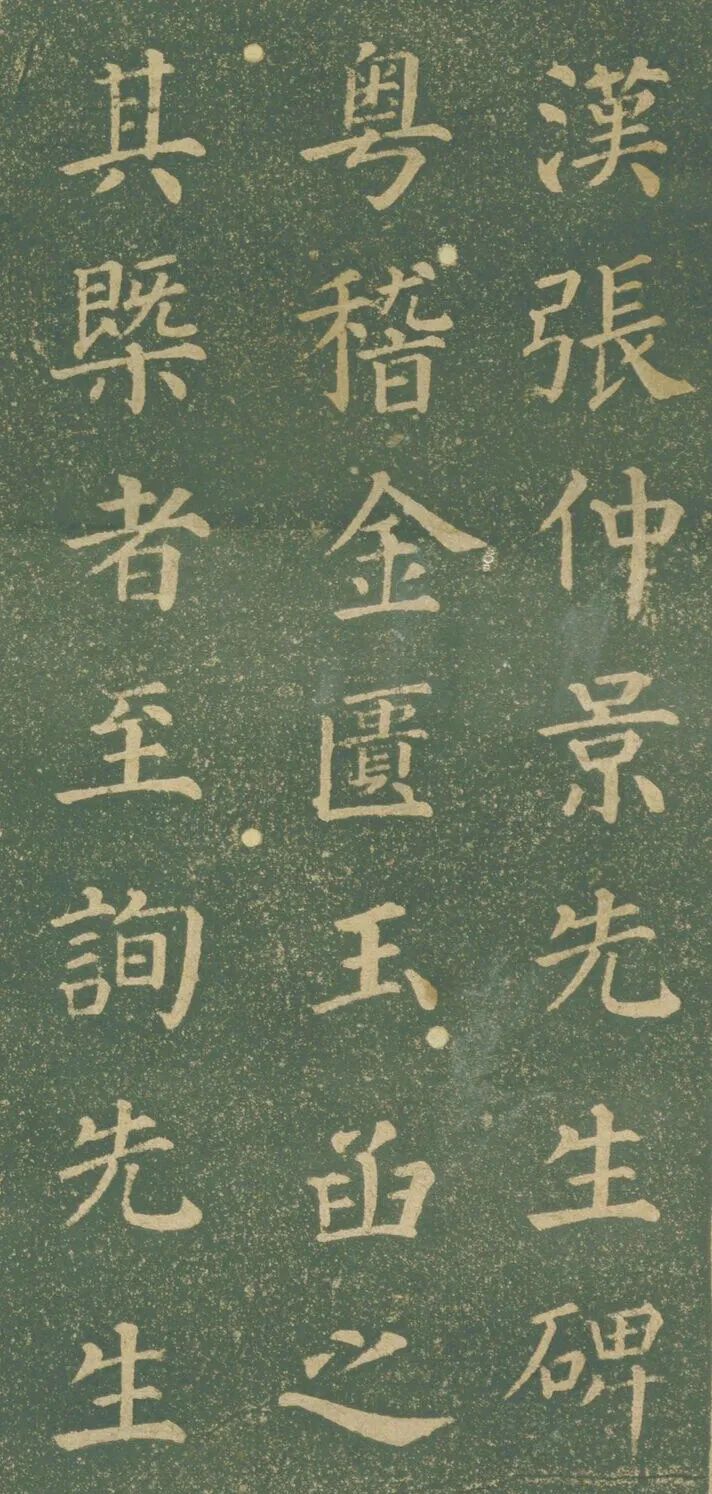 漢張仲景先生碑
粤稽金匱玉函之
其槩者至詢先生